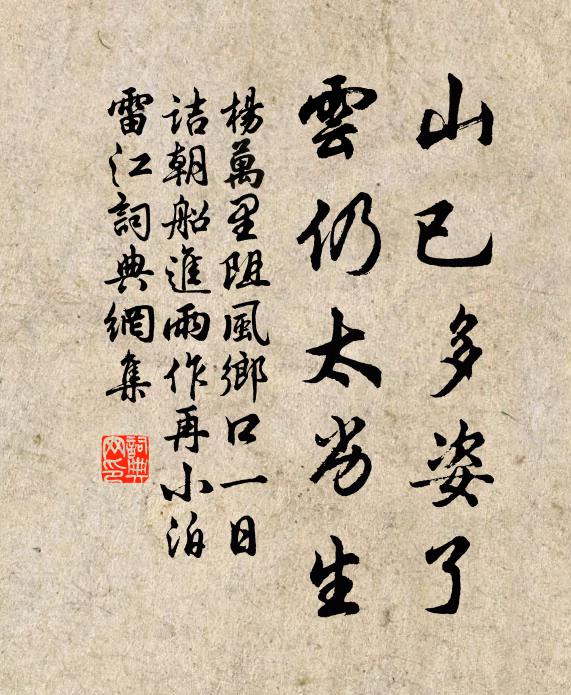 山已多姿了
雲仍太劣生
楊萬里阻風鄉口一日
詰朝船進雨作再小泊
雷江詞典網集
詞典網印